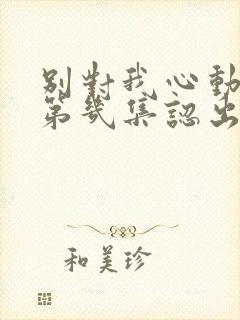 別對我心動
第幾集認出
和美珍